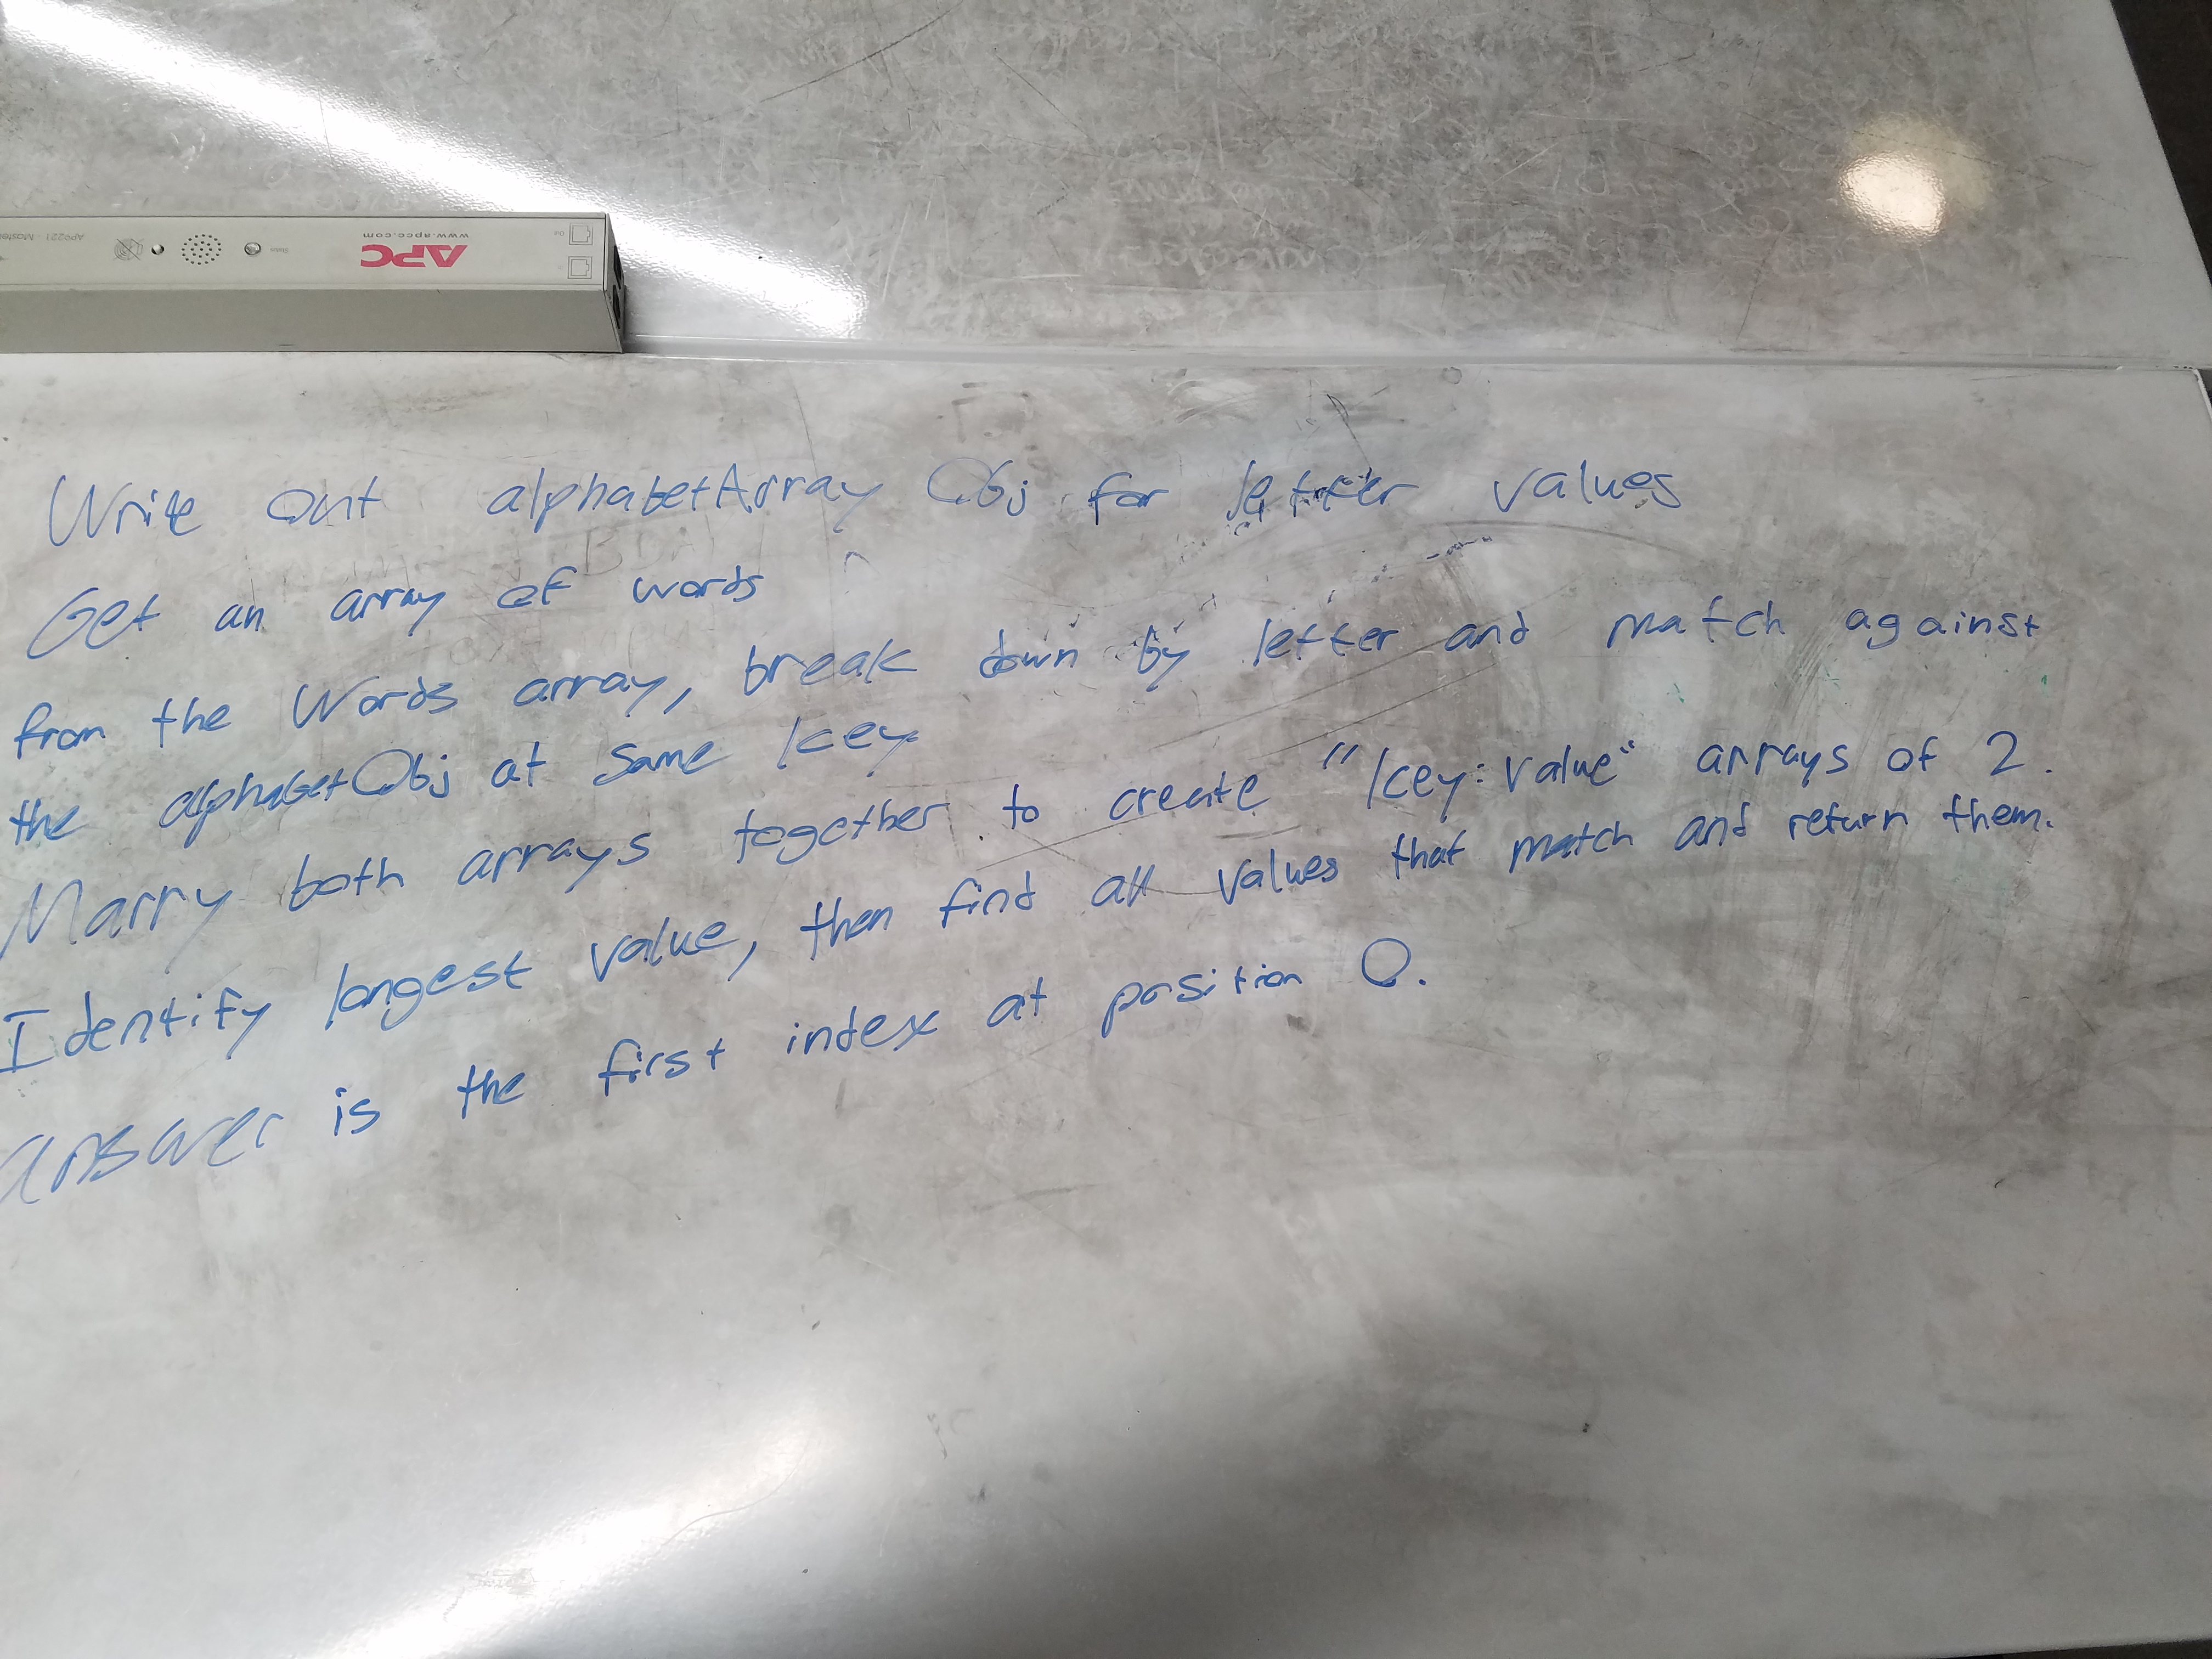 APC
www.apcc.com
Status
AP9221 - Master
Write Out alphabetArray Obj for letter values
Get an array of words
from the Words array, break down by letter and match against
the alphabetObj at same key
Marry both arrays together to create "key: value" arrays of 2.
Identify longest value, then find all values that match and return them.
answer is the first index at position 0.